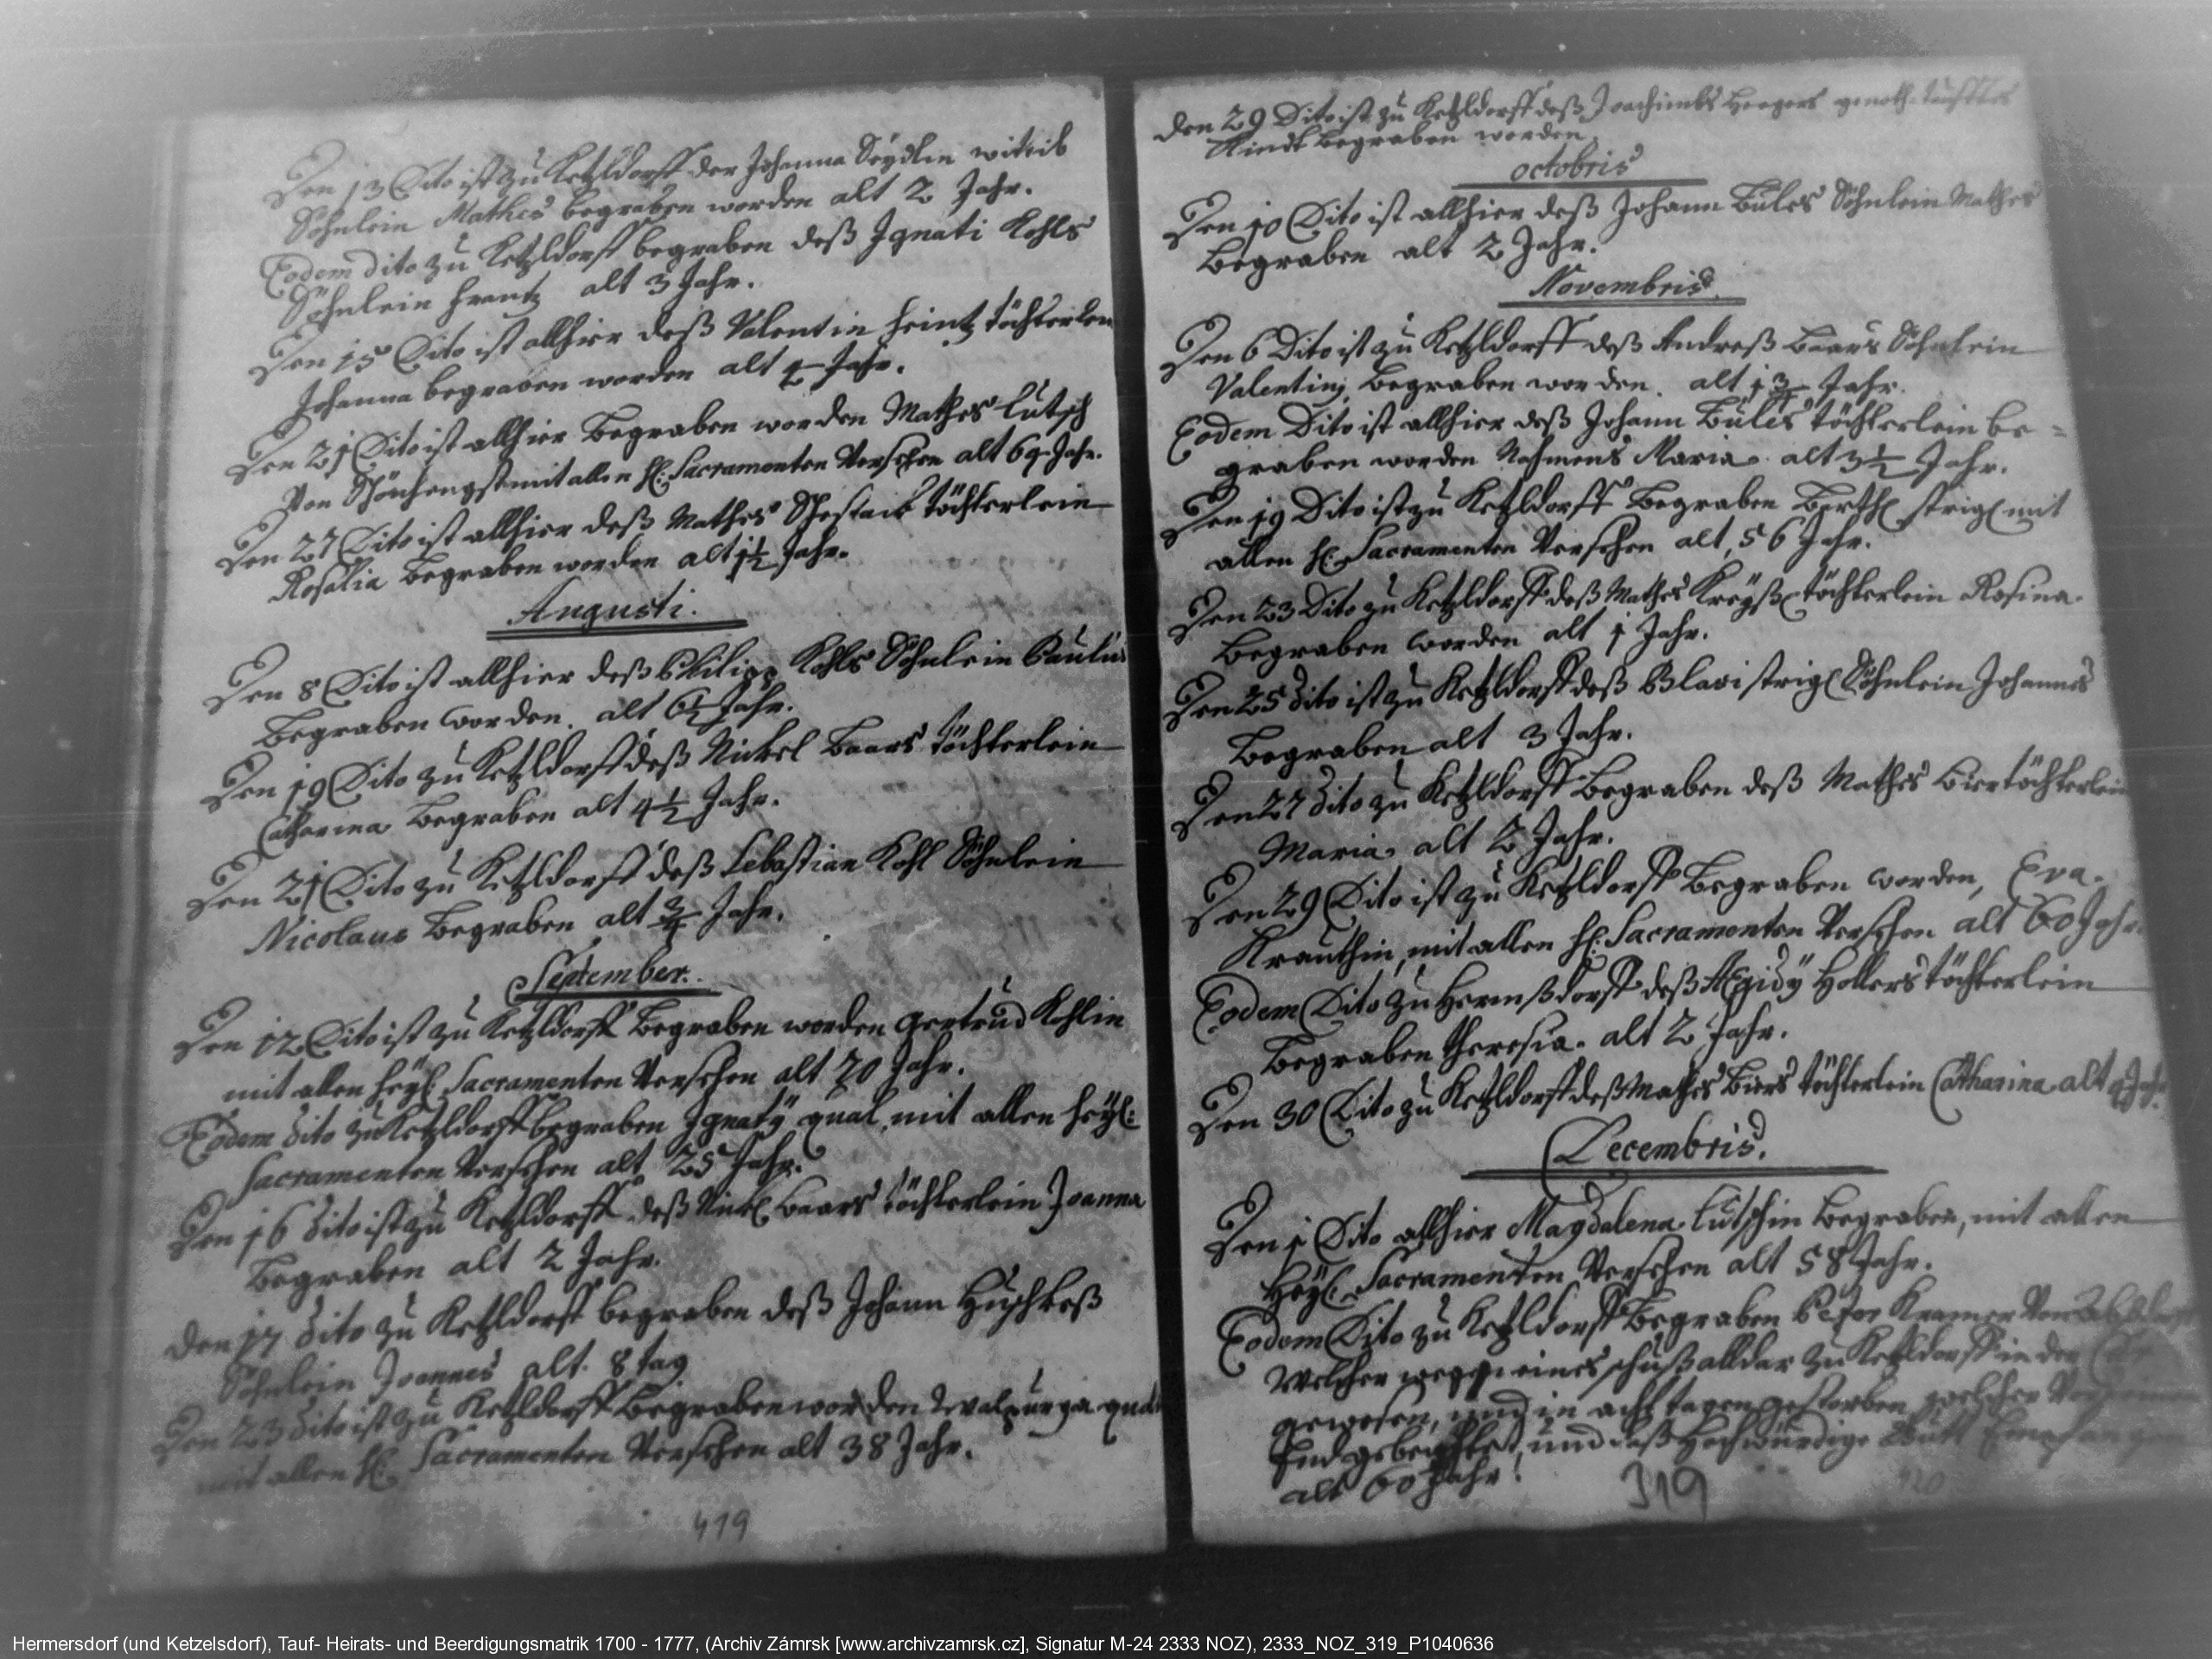 Den 13 Dito ist zu Ketzldorff der Johanna Seydlin wittib
Söhnlein Mathes begraben worden alt 2 Jahr.
Eodem dito zu Ketzldorff begraben deß Ignati Kohls
Söhnlein Frantz alt 3 Jahr.
Den 15 Dito ist allhier deß Valentin Heintz töchterlein
Johanna begraben worden alt Jahr.
Den 21 Dito ist allhier Begraben worden Mathes Lutsch
Von Schönhengst mit allen hl: Sacramenten Versehen alt 69 Jahr.
Den 27 Dito ist allhier deß Mathes töchterlein
Rosalia begraben worden alt 1½ Jahr.
Augusti.
Den 8 Dito ist allhier deß Philipp Kohls Söhnlein Paulus
Begraben worden. alt Jahr.
Den 19 Dito zu Ketzldorff deß Nickel Baars töchterlein
Catharina Begraben alt 4½ Jahr.
Den 21 Dito zu Ketzldorff deß Sebastian Kohl Söhnlein
Nicolaus Begraben alt ¾ Jahr.
September.
Den 12 Dito ist zu Ketzldorff Begraben worden Gertrud Kohlin
mit allen heyl: Sacramenten Versehen alt 70 Jahr.
Eodem dito zu Ketzldorff begraben Ignaty qual, mit allen heyl:
Sacramenten Versehen alt 25 Jahr.
Den 16 dito ist zu Ketzldorff deß Nickl Baars töchterlein Joanna
Begraben alt 2 Jahr.
Den 17 dito zu Ketzldorff begraben deß Johann
Söhnlein Joannes alt. 8 tag
Den 23 dito ist zu Ketzldorff Begraben worden Walpurga
mit allen hl: Sacramenten Versehen alt 38 Jahr.
419
Den 29 Dito ist zu Ketzldorff deß Joachimbs
Kindt begraben worden.
octobris
Den 10 Dito ist allhier deß Johann Bules Söhnlein Mathes
Begraben alt 2 Jahr.
Novembris.
Den 6 Dito ist zu Ketzldorff deß Andreß Baars Söhnlein
Valentin, begraben worden. alt 1¾ Jahr.
Eodem Dito ist allhier deß Johann Bules töchterlein be=
graben worden Nahmens Maria. alt 3½ Jahr.
Den 19 Dito ist zu Ketzldorff Begraben Barthl strigl mit
allen hl: Sacramenten Versehen alt, 56 Jahr.
Den 23 Dito zu Ketzldorff deß Mathes Kreyßl töchterlein Rosina
begraben worden alt 1 Jahr.
Den 25 dito ist zu Ketzldorff deß Blasi strigl Söhnlein Johannes
Begraben alt 3 Jahr.
Den 27 dito zu Ketzldorff Begraben deß Mathes Bier töchterlein
Maria alt 2 Jahr.
Den 29 Dito ist zu Ketzldorff Begraben worden, Eva
Krauthin, mit allen hl: Sacramenten Versehen alt 60 Jahr
Eodem Dito zu Hermßdorff deß Ægidy Hollers töchterlein
Begraben theresia. alt 2 Jahr.
Den 30 Dito zu Ketzldorff deß Mathes Biers töchterlein Catharina alt
Decembris.
Den 1 Dito allhier Magdalena Lutschin begraben, mit allen
Heyl: Sacramenten Versehen alt 58 Jahr.
Eodem Dito zu Ketzldorff Begraben Peter Kramer Von
Welcher wegen eines schuß alldar zu Ketzldorff in der
gewesen, und in acht tagen gestorben, welcher
und deß Hochwürdige Gutt Empfangen
alt 60 Jahr.
319
420
Hermersdorf (und Ketzelsdorf), Tauf- Heirats- und Beerdigungsmatrik 1700 - 1777, (Archiv Zámrsk [www.archivzamrsk.cz], Signatur M-24 2333 NOZ), 2333_NOZ_319_P1040636